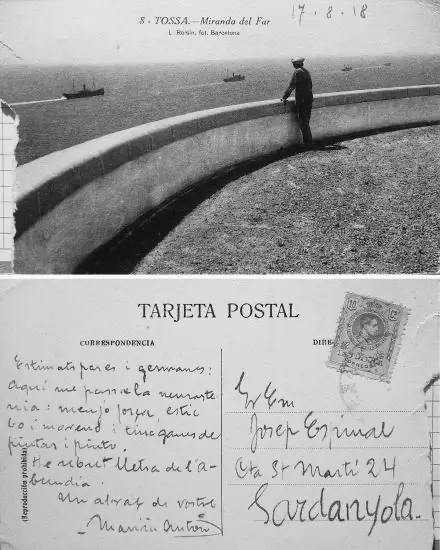 17-8-18
8 - TOSSA.—Miranda del Far
L. Roisin, fot. Barcelona
TARJETA POSTAL
CORRESPONDENCIA
DIRE
Estimats pares i germans:
Aquí me passe la neuraste
nia: menjo força, estic
bo i moreno i tinc ganes de
pintar i pinto.
He rebut lletra de l'a-
Un abraç de vostre
(Reproducción prohibida)
10 CS
CORREOS
Josep Espinal
Cta St Martí 24
Sardanyola.